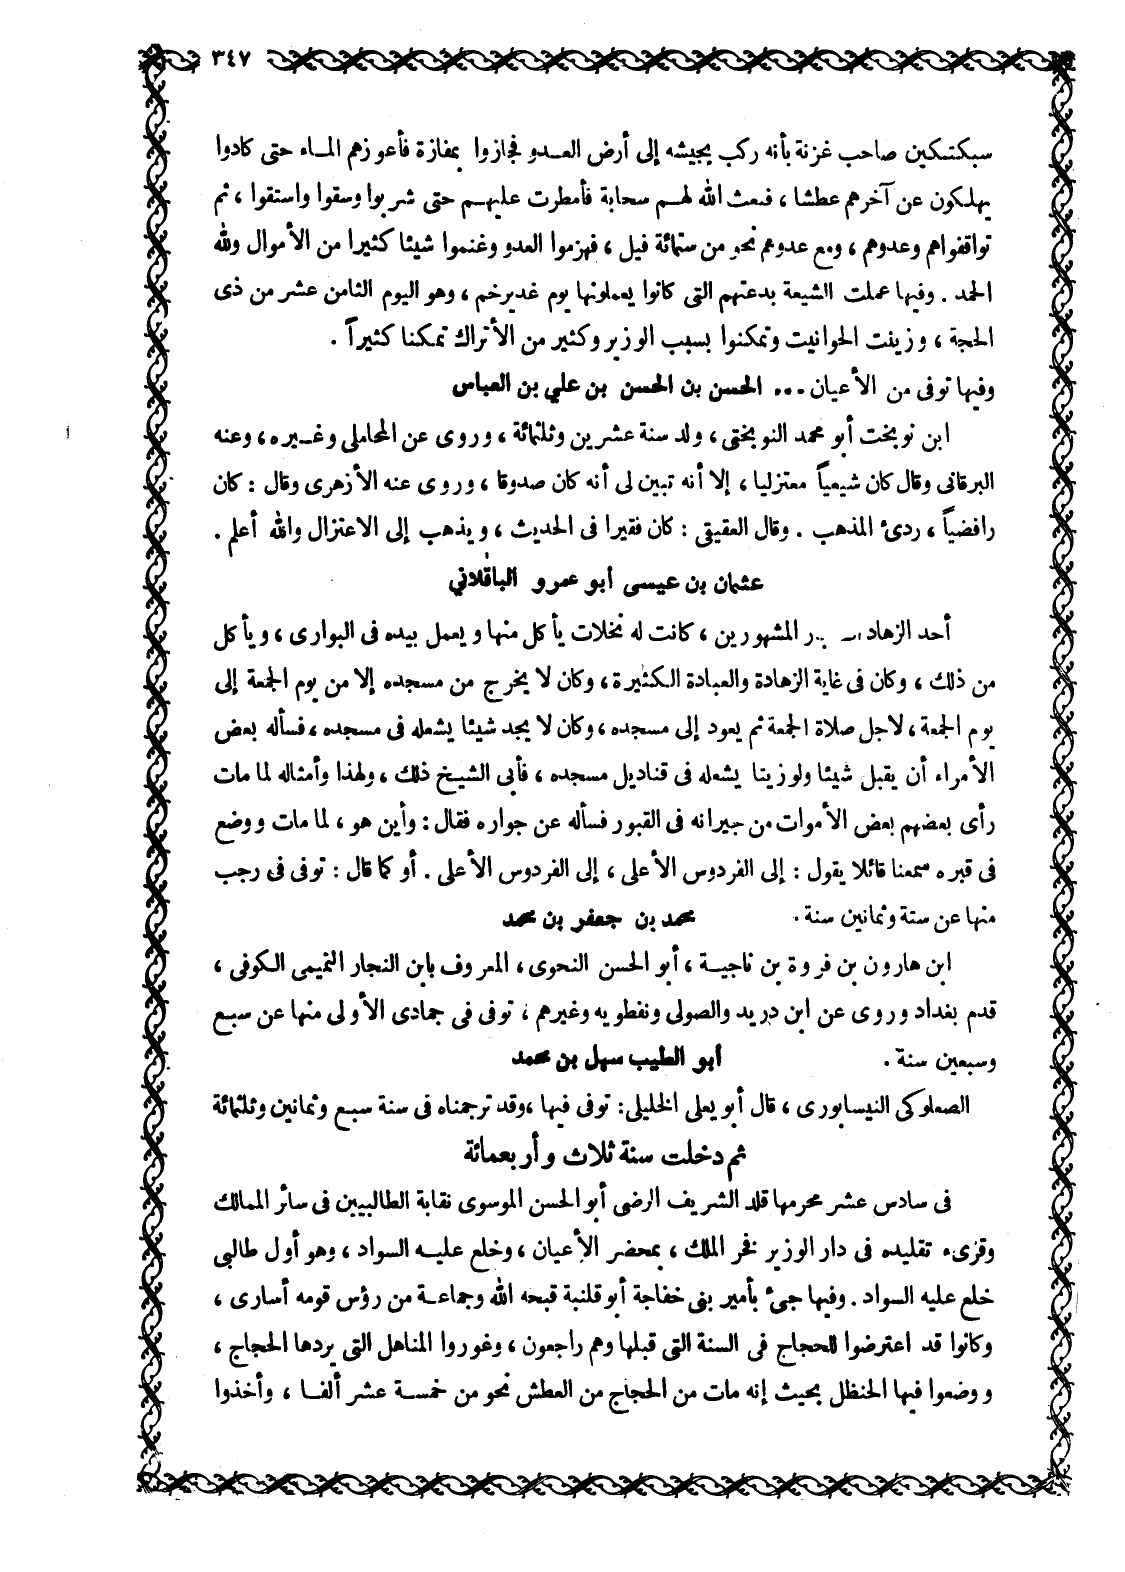 ٣٤٧
سبكتكين صاحب غزنة بأنه ركب بجيشه إلى أرض العدو فجازوا بمفازة فأعوزهم الماء حتى كادوا
يهلكون عن آخرهم عطشا ، فبعث الله لهم سحابة فأمطرت عليهم حتى شربوا وسقوا واستقوا ، ثم
تواقفواهم وعدوهم ، ومع عدوهم نحو من ستمائة فيل ، فهزموا العدو وغنموا شيئا كثيرا من الأموال ولله
الحمد . وفيها عملت الشيعة بدعتهم التى كانوا يعملونها يوم غدير خم ، وهو اليوم الثامن عشر من ذى
الحجة ، وزينت الحوانيت وتمكنوا بسبب الوزير وكثير من الأتراك تمكنا كثيراً .
وفيها توفى من الأعيان ... الحسن بن الحسن بن علي بن العباس
ابن نوبخت أبو محمد النوبختى ، ولد سنة عشرين وثلثمائة ، وروى عن المحاملى وغيره ، وعنه
البرقانى وقال كان شيعياً معتزليا ، إلا أنه تبين لى أنه كان صدوقا ، وروى عنه الأزهرى وقال : كان
رافضياً ، ردئ المذهب . وقال العقيقى : كان فقيرا فى الحديث ، ويذهب إلى الاعتزال والله أعلم .
عثمان بن عيسى أبو عمرو الباقلاني
أحد الزهاد المشهورين ، كانت له نخلات يأكل منها ويعمل بيده فى البوارى ، ويأكل
من ذلك ، وكان فى غاية الزهادة والعبادة الكثيرة ، وكان لا يخرج من مسجده إلا من يوم الجمعة إلى
يوم الجمعة ، لاجل صلاة الجمعة ثم يعود إلى مسجده ، وكان لا يجد شيئا يشعله فى مسجده ، فسأله بعض
الأمراء أن يقبل شيئا ولو زيتا يشعله فى قناديل مسجده ، فأبى الشيخ ذلك ، ولهذا وأمثاله لما مات
رأى بعضهم بعض الأموات من جيرانه فى القبور فسأله عن جواره فقال : وأين هو ، لما مات ووضع
فى قبره سمعنا قائلا يقول : إلى الفردوس الأعلى ، إلى الفردوس الأعلى . أو كما قال : توفى فى رجب
منها عن ستة وثمانين سنة . محمد بن جعفر بن محمد
ابن هارون بن فروة بن ناجية ، أبو الحسن النحوى ، المعروف بابن النجار التميمى الكوفى ،
قدم بغداد وروى عن ابن دريد والصولى ونفطويه وغيرهم ، توفى فى جمادى الأولى منها عن سبع
وسبعين سنة . أبو الطيب سهل بن محمد
الصعلوكى النيسابورى ، قال أبو يعلى الخليلى : توفى فيها ، وقد ترجمناه فى سنة سبع وثمانين وثلثمائة
ثم دخلت سنة ثلاث وأربعمائة
فى سادس عشر محرمها قلد الشريف الرضى أبو الحسن الموسوى نقابة الطالبيين فى سائر الممالك
وقرىء تقليده فى دار الوزير فخر الملك ، بمحضر الأعيان ، وخلع عليه السواد ، وهو أول طالبي
خلع عليه السواد . وفيها جئ بأمير بنى خفاجة أبو قلنبة قبحه الله وجماعة من رؤس قومه أسارى ،
وكانوا قد اعترضوا للحجاج فى السنة التى قبلها وهم راجعون ، وغوروا المناهل التى يردها الحجاج ،
ووضعوا فيها الحنظل بحيث إنه مات من الحجاج من العطش نحو من خمسة عشر ألفا ، وأخذوا